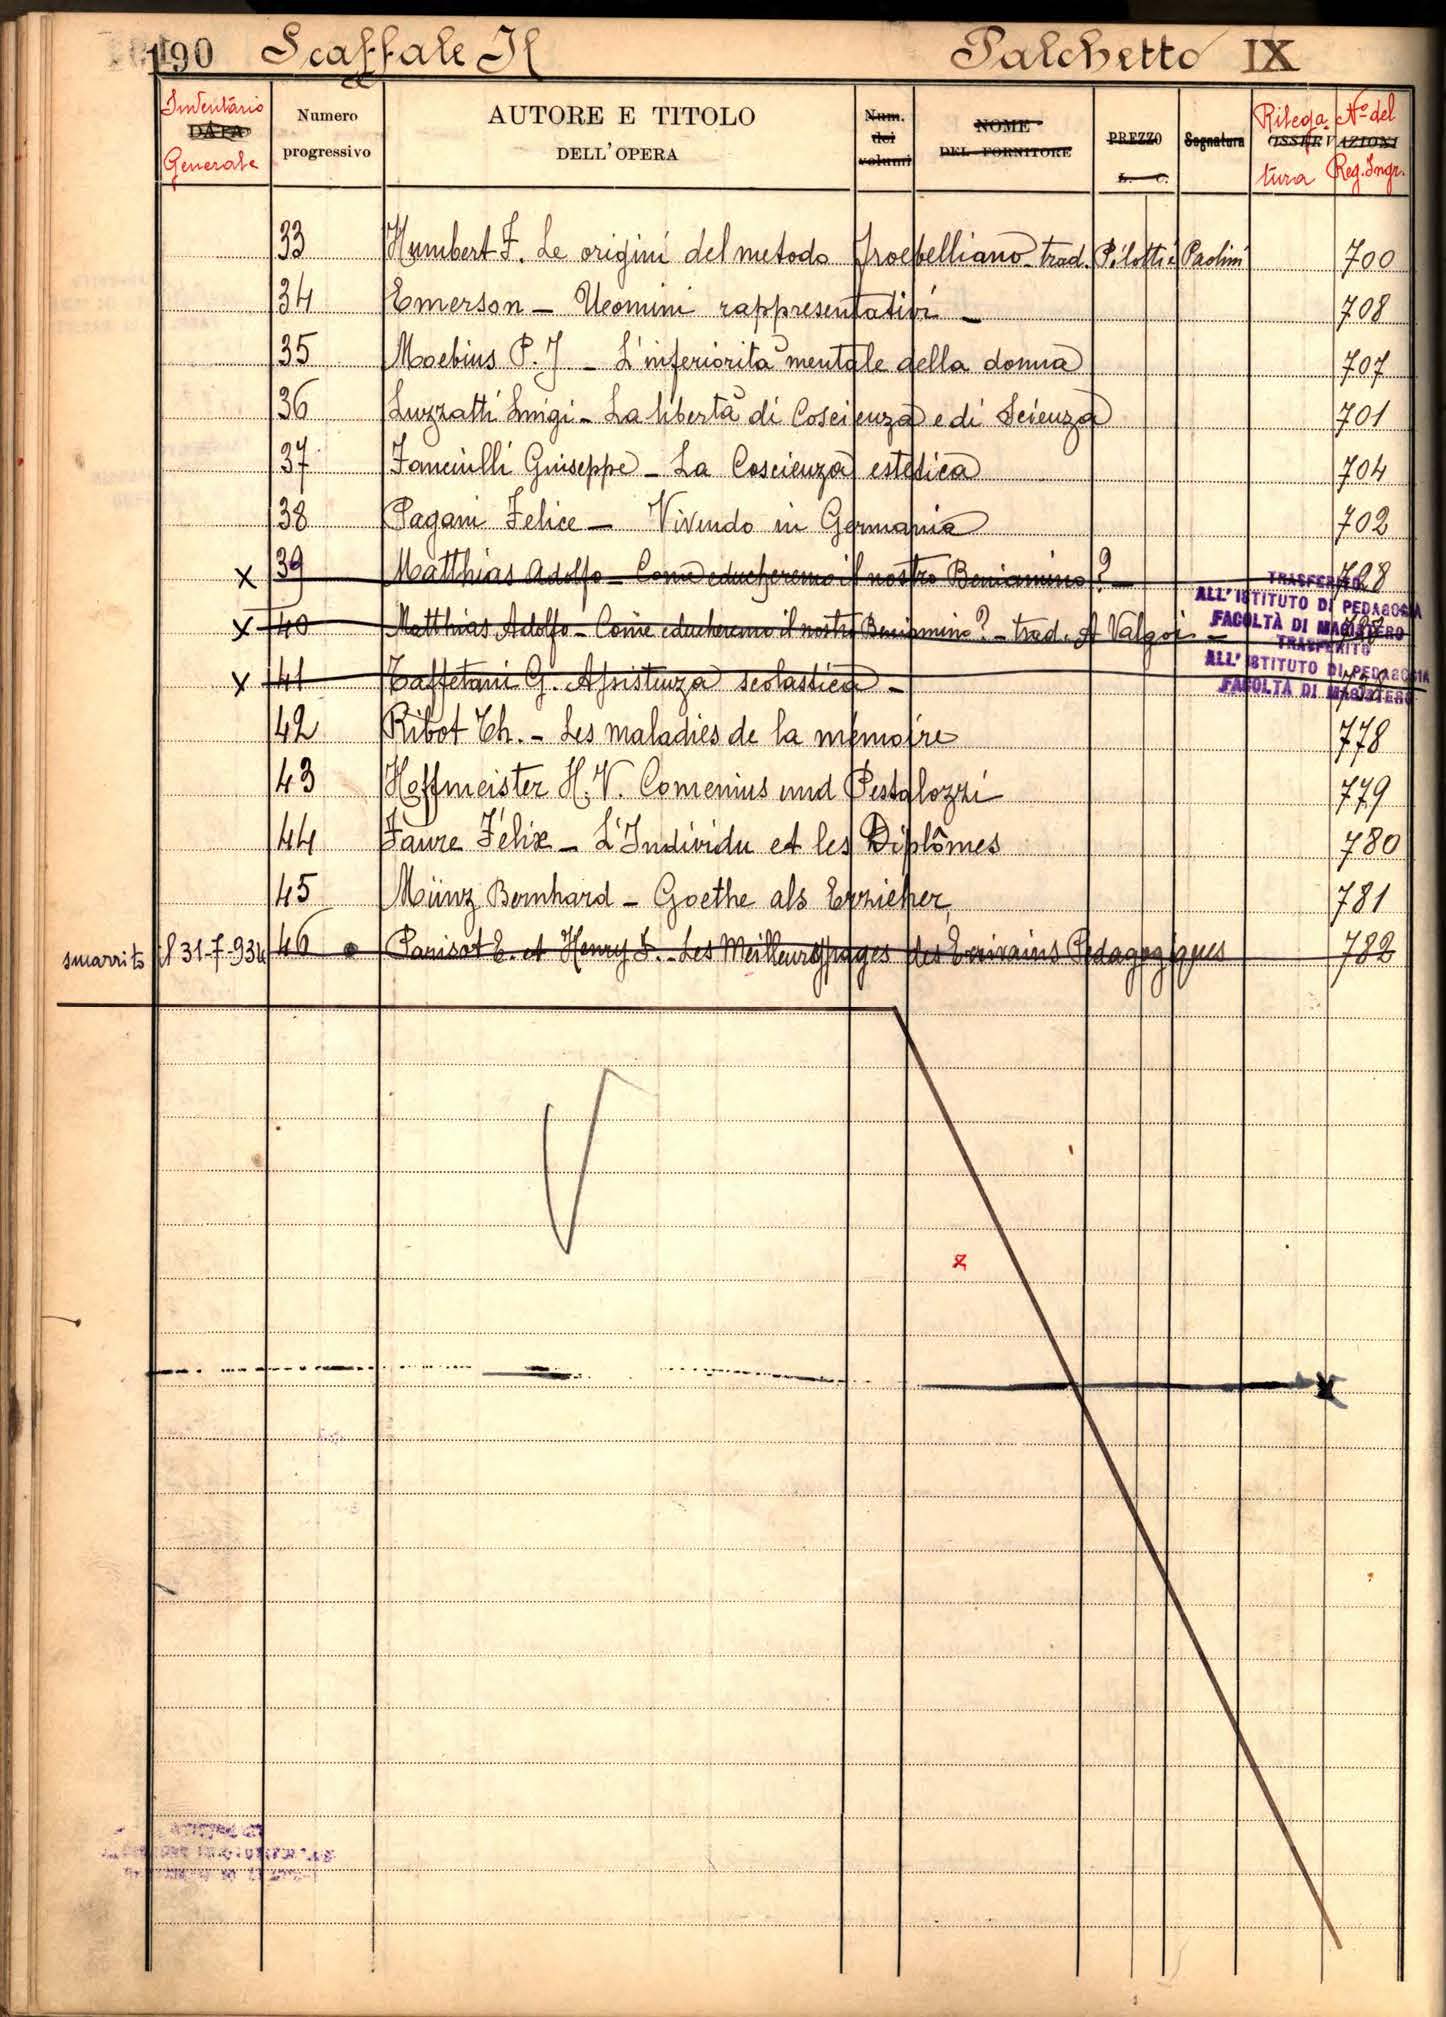 190 Scaffale II Palchetto IX
Inventario Generale DATA Numero progressivo AUTORE E TITOLO DELL'OPERA Num. dei volumi NOME DEL FORNITORE PREZZO L. C. Segnatura Rilegatura OSSERVAZIONI Nº del Reg. Ingr.
33 Humbert F. Le origini del metodo Froebelliano trad. Pilotti e Paolini 700
34 Emerson - Uomini rappresentativi - 708
35 Moebius P. J - L'inferiorità mentale della donna 707
36 Luzzatti Luigi - La libertà di Coscienza e di Scienza 701
37 Fanciulli Giuseppe - La Coscienza estetica 704
38 Pagani Felice - Vivendo in Germania 702
x 39 Matthias Adolfo - Come educheremo il nostro Beniamino? - 728
TRASFERITO
ALL'ISTITUTO DI PEDAGOGIA
FACOLTÀ DI MAGISTERO
x 40 Matthias Adolfo - Come educheremo il nostro Beniamino? - trad. A Valgoi -
TRASFERITO
ALL'ISTITUTO DI PEDAGOGIA
FACOLTÀ DI MAGISTERO
x 41 Taffetani G. Assistenza scolastica -
42 Ribot Th. - Les maladies de la mémoire 778
43 Hoffmeister H. V. Comenius und Pestalozzi 779
44 Faure Félix - L'Individu et les Diplômes 780
45 Münz Bernhard - Goethe als Erzieher 781
smarrito il 31-7-934 46 Parisot E. et Henry F. - Les Meilleures pages des Ecrivains Pedagogiques 782